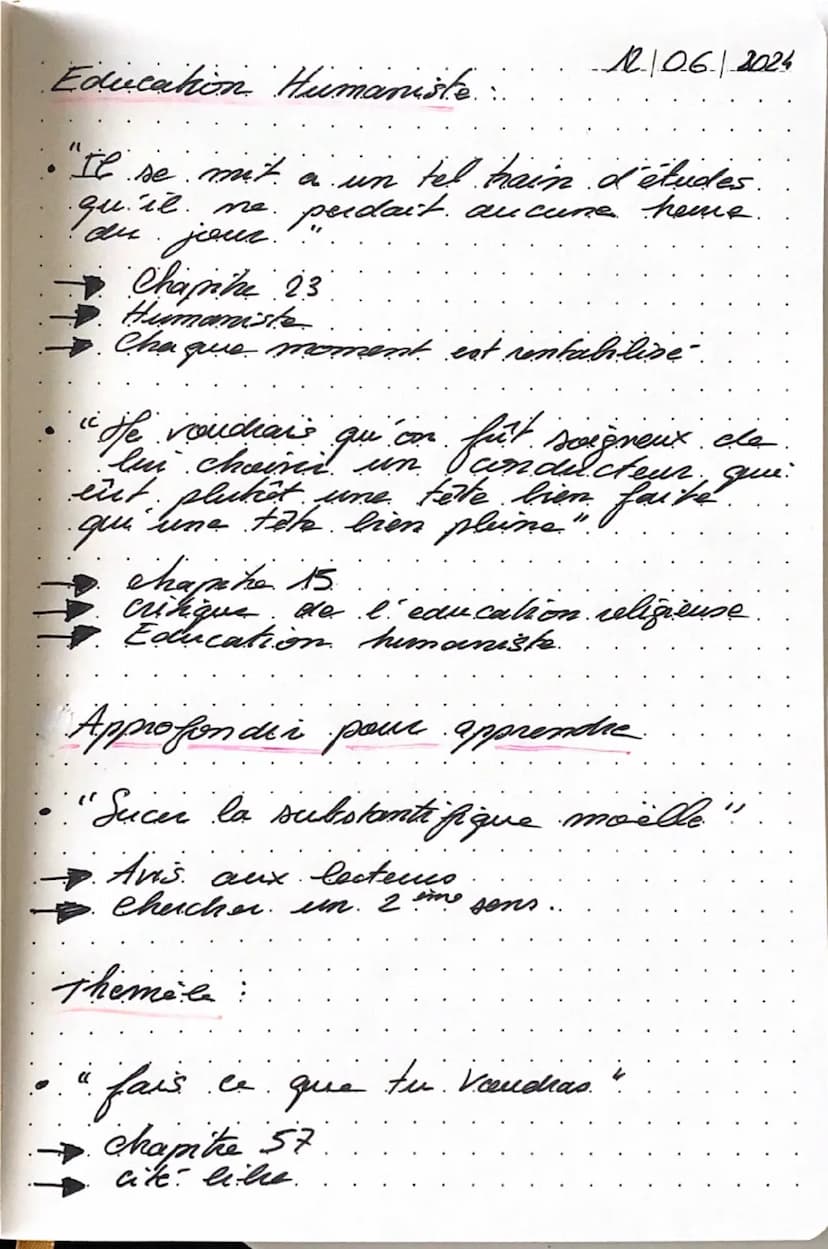 12/06/2024
Education Humaniste :
• "Il se mit a un tel train d'études
qu'il ne perdait aucune heure
du jour."
→ Chapitre 23
→ Humaniste
→ Chaque moment est rentabilisé
• "Je voudrais qu'on fût soigneux de
lui choisir un conducteur qui
eût plutôt une tête bien faite
qu'une tête bien pleine"
→ chapitre 15
→ critique de l'education religieuse
→ Education humaniste
Approfondir pour apprendre
• "Sucer la substantifique moëlle"
→ Avis aux lecteurs
→ Chercher un 2ème sens.
Themèle :
• "fais ce que tu Voudras"
→ chapitre 57
→ cité libre